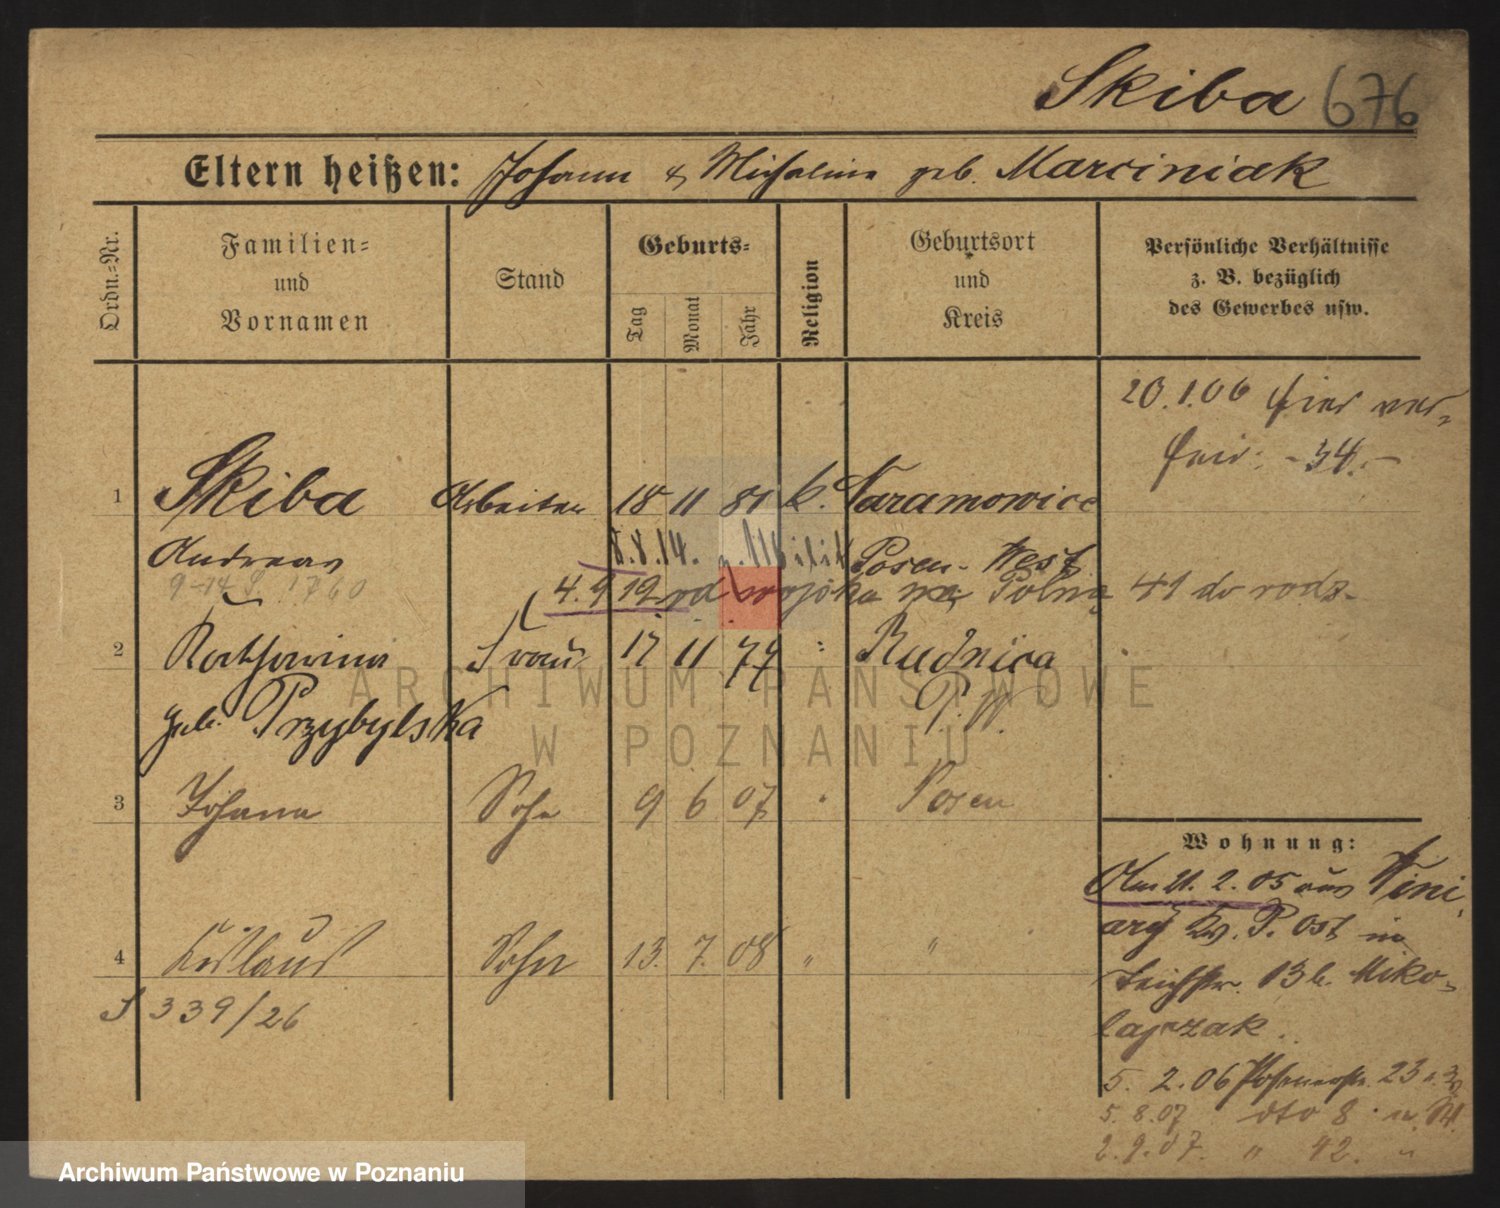 Skiba 676
Eltern heißen: Johann & Michalina geb. Marciniak
Ordn.=Nr.
Familien=
und
Vornamen
Stand
Geburts=
Tag
Monat
Jahr
Religion
Geburtsort
und
Kreis
Persönliche Verhältnisse
z. B. bezüglich
des Gewerbes usw.
20.1.06 hier ver-
heir. -34.-
1 Skiba Arbeiter 18 11 81 k. Naramowice
Andreas 8.8.14. z. Milit Posen-West
9-14 1760
4.9.19 od wojska na Polną 41 do rodz.
2 Katharina Frau 17 11 79 " Rudnica
geb. Przybylska P. W.
3 Johann Sohn 9 6 07 " Posen
4 Sohn 13. 7. 08 " "
S 339/26
Wohnung:
Am 21. 2. 05 aus Wini-
ary Kr. P. Ost in
Teichstr. 13 b. Miko-
lajczak.
5. 2. 06 Posenerstr. 23
5. 8. 07 dto 8
2. 9. 07. " 42. "
ARCHIWUM PAŃSTWOWE
W POZNANIU
Archiwum Państwowe w Poznaniu